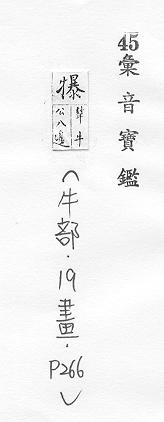 45彙音寶鑑
犦
犎牛
公八邊
(牛部.19畫.P266)